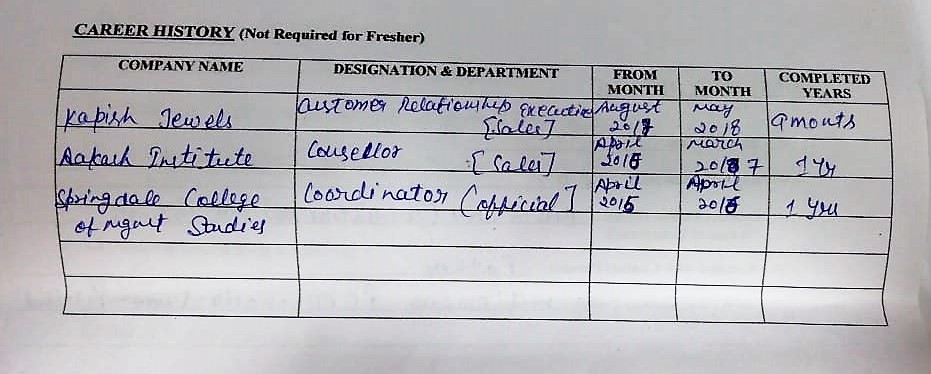 CAREER HISTORY (Not Required for Fresher)
COMPANY NAME DESIGNATION & DEPARTMENT FROM MONTH TO MONTH COMPLETED YEARS
Kapish Jewels Customer Relationship Executive [Sales] August 2017 May 2018 9 monts
Aakash Institute Counsellor [Sales] April 2016 March 2017 1 Yr
Springdale College of mgmt Studies Coordinator (official] April 2015 April 2016 1 Year